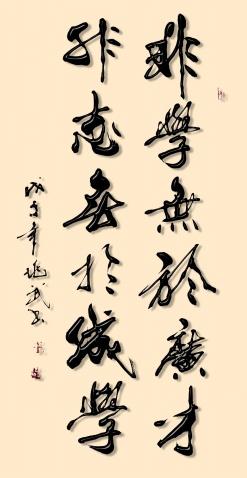 非學無於廣才
非志無於成學
戊子年武書